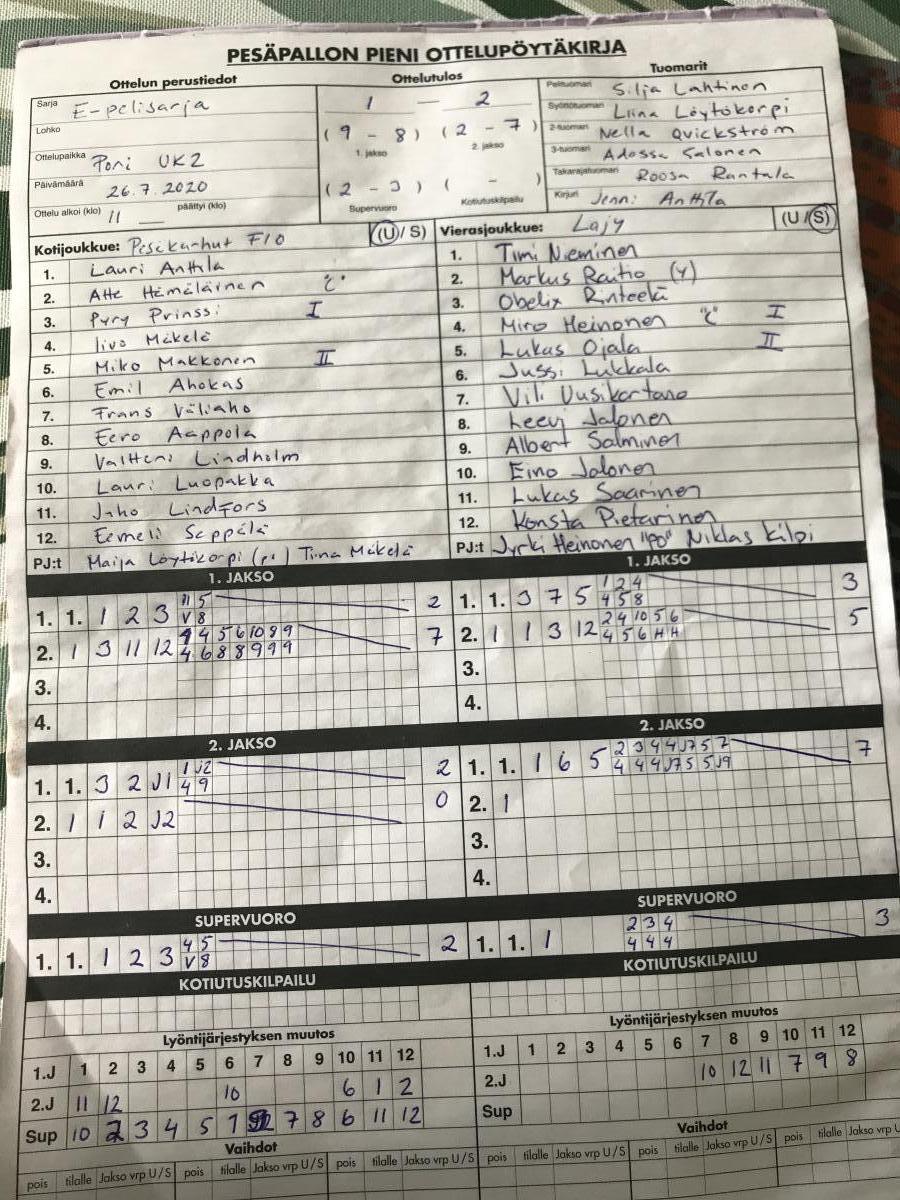 PESÄPALLON PIENI OTTELUPÖYTÄKIRJA
Ottelun perustiedot Ottelutulos Tuomarit
Sarja E-pelisarja
Lohko
Ottelupaikka Pori UK2
Päivämäärä 26.7.2020
Ottelu alkoi (klo) 11 päättyi (klo)
1 — 2
(9 - 8) (2 - 7)
1. jakso 2. jakso
(2 - 3) ( - )
Supervuoro Kotiutuskilpailu
Pelituomari Silja Lahtinen
Syöttötuomari Liina Löytökorpi
2-tuomari Nella Qvickström
3-tuomari Adessa Salonen
Takarajatuomari Roosa Rantala
Kirjuri Jenni Anttila
Kotijoukkue: Pesäkarhut F10 (U/S)
1. Lauri Anttila
2. Atte Hämäläinen "C"
3. Pyry Prinssi I
4. Iivo Mäkelä
5. Miko Makkonen II
6. Emil Ahokas
7. Frans Väliaho
8. Eero Aappola
9. Valtteri Lindholm
10. Lauri Luopakka
11. Juho Lindfors
12. Eemeli Seppälä
PJ:t Maija Löytökorpi Tiina Mäkelä
Vierasjoukkue: LaJy (U/S)
1. Timi Nieminen
2. Markus Raitio (Y)
3. Obelix Rinteelä
4. Miro Heinonen "C" I
5. Lukas Ojala II
6. Jussi Lukkala
7. Vili Uusikartano
8. Leevi Jalonen
9. Albert Salminen
10. Eino Jalonen
11. Lukas Saarinen
12. Konsta Pietarinen
PJ:t Jyrki Heinonen "PO" Niklas Kilpi
1. JAKSO
1. 1. 1 2 3 11 5 2
V 8
2. 1 3 11 12 4 4 5 6 10 8 9 7
4 6 8 8 9 9 9
3.
4.
1. JAKSO
1. 1. 3 7 5 1 2 4 3
4 5 8
2. 1 1 3 12 2 4 10 5 6 5
4 5 6 H H
3.
4.
2. JAKSO
1. 1. 3 2 J1 1 J2 2
4 9
2. 1 1 2 J2 0
3.
4.
2. JAKSO
1. 1. 1 6 5 2 3 4 4 J7 5 7 7
4 4 4 J7 5 5 J9
2. 1
3.
4.
SUPERVUORO
1. 1. 1 2 3 4 5 2
V 8
SUPERVUORO
1. 1. 1 2 3 4 3
4 4 4
KOTIUTUSKILPAILU
KOTIUTUSKILPAILU
Lyöntijärjestyksen muutos
1.J 1 2 3 4 5 6 7 8 9 10 11 12
2.J 11 12 10 6 1 2
Sup 10 2 3 4 5 1 7 8 6 11 12
Lyöntijärjestyksen muutos
1.J 1 2 3 4 5 6 7 8 9 10 11 12
2.J 10 12 11 7 9 8
Sup
Vaihdot
pois tilalle Jakso vrp U/S pois tilalle Jakso vrp U/S pois tilalle Jakso vrp U/S
Vaihdot
pois tilalle Jakso vrp U/S pois tilalle Jakso vrp U/S pois tilalle Jakso vrp U/S